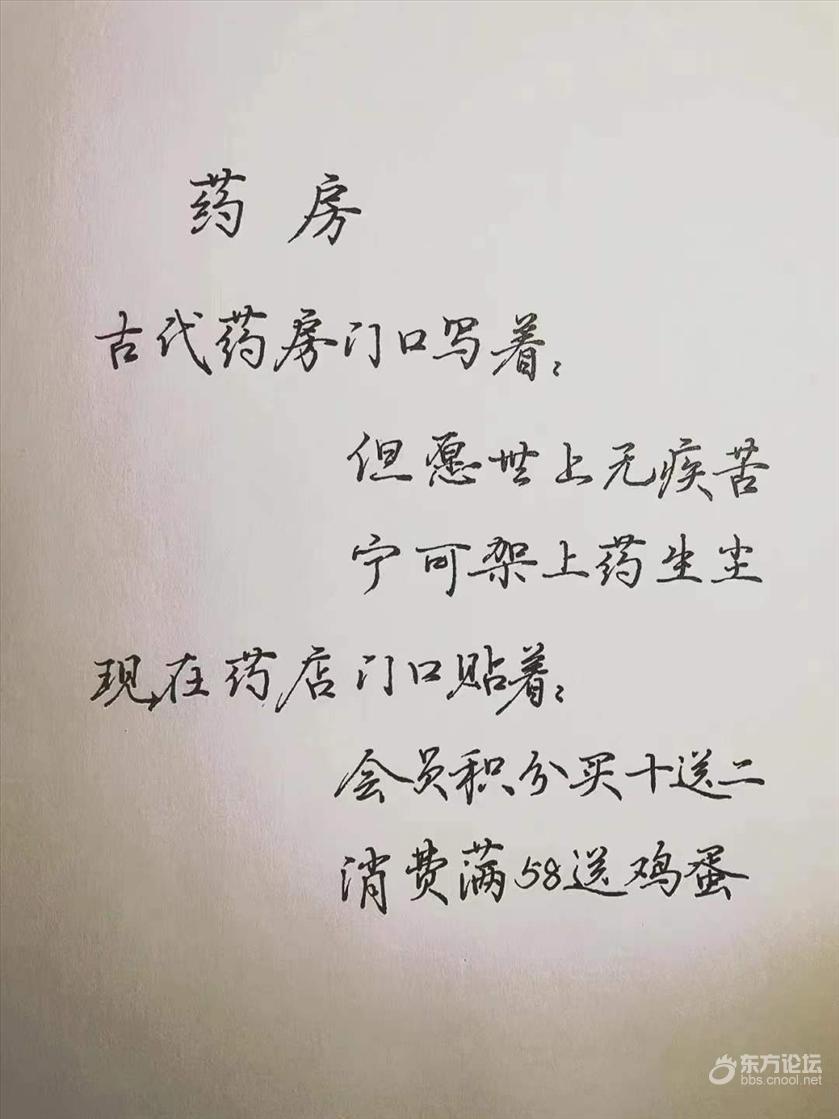 药 房
古代药房门口写着：
但愿世上无疾苦
宁可架上药生尘
现在药店门口贴着：
会员积分买十送二
消费满58送鸡蛋
东方论坛
bbs.cnool.net